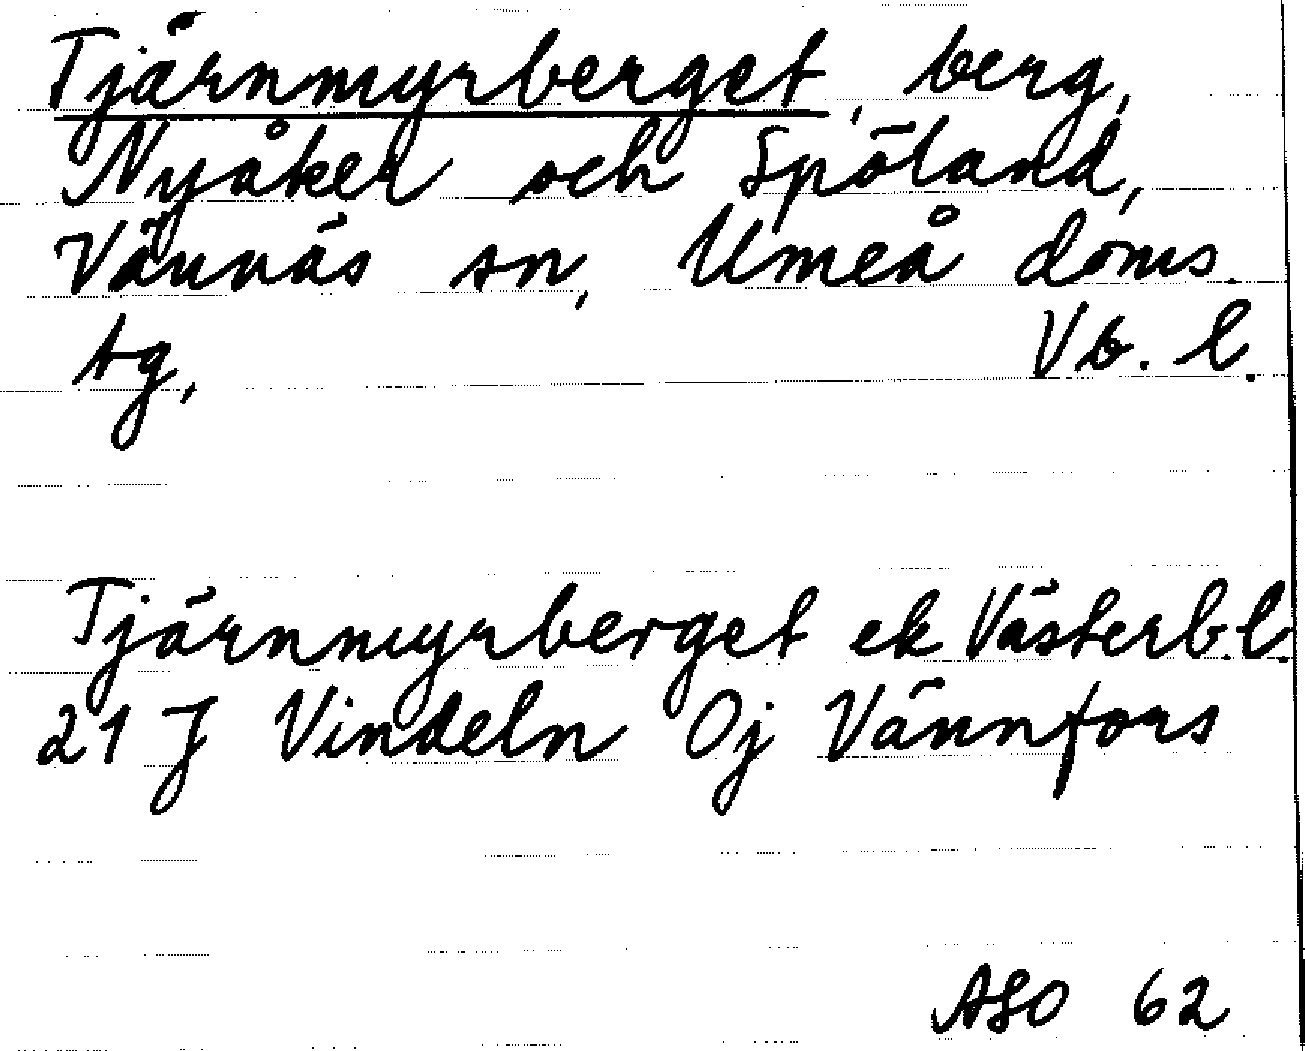 Tjärnmyrberget, berg,
Nyåker och Spöland,
Vännäs sn, Umeå doms.
tg, Vb. l.
Tjärnmyrberget ek Västerb.l.
21 J Vindeln Oj Vännfors
ASO 62